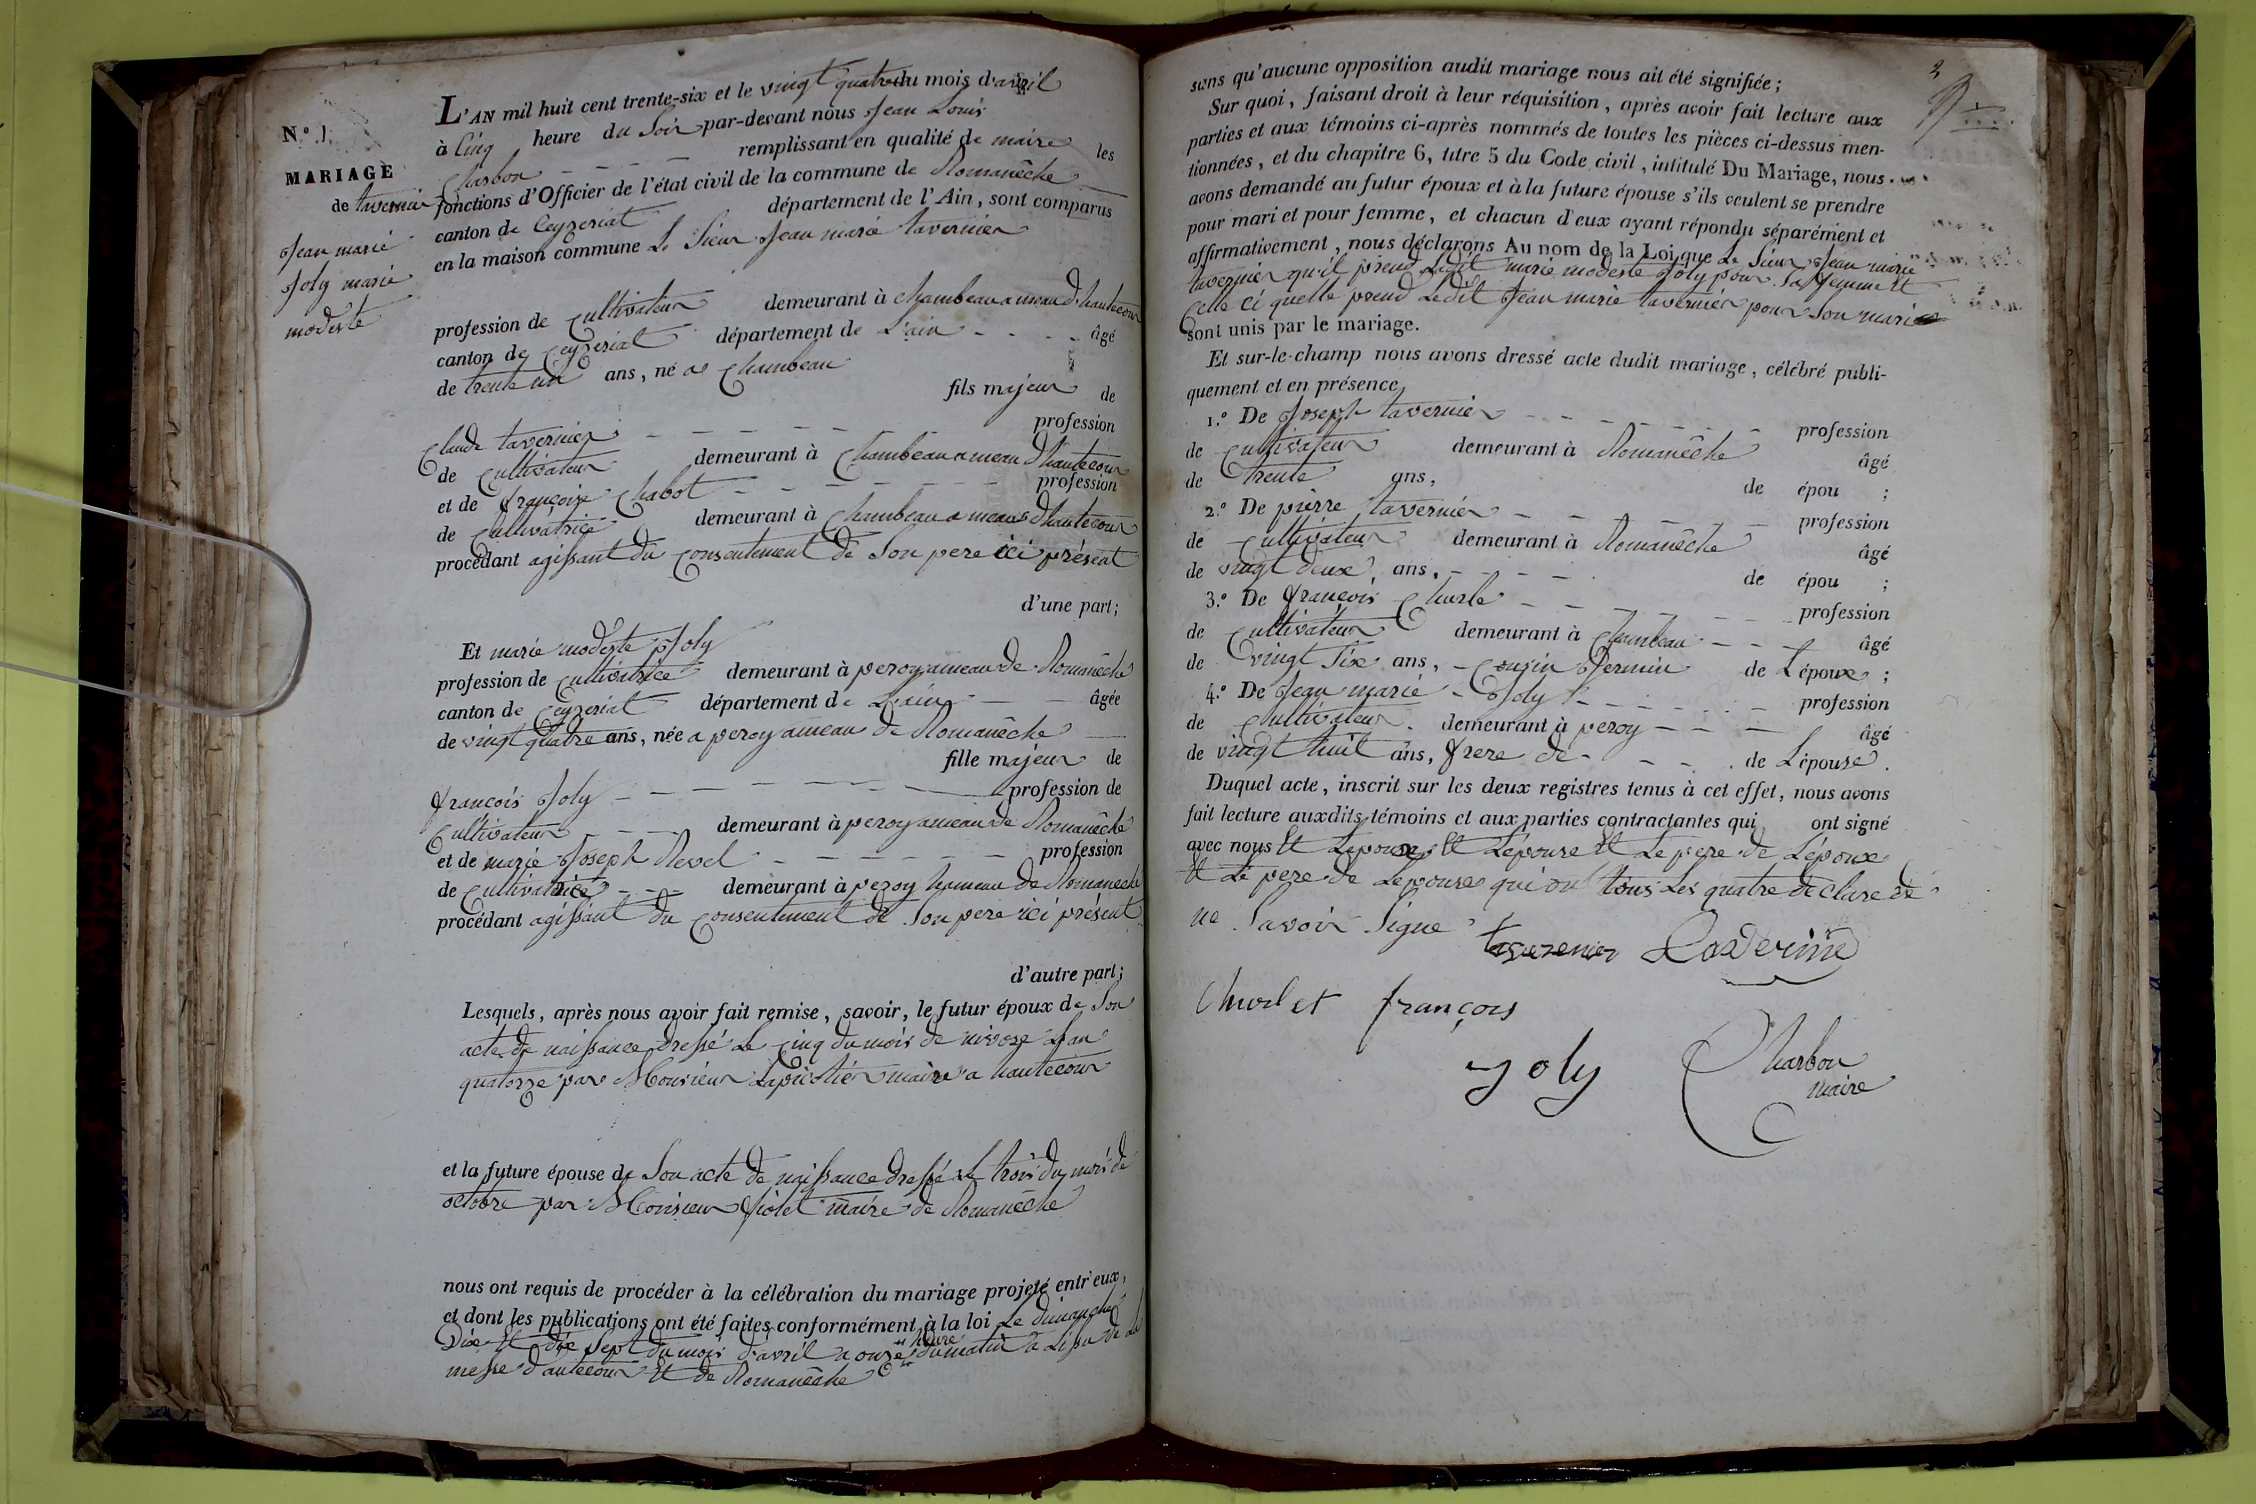 N.º 1.
MARIAGE
de tavernier
Jean marie
Joly marie
modeste
L'AN mil huit cent trente-six et le vingt quatre du mois d'avril
à Cinq heure du Soir par-devant nous Jean Louis
Charbon remplissant en qualité de maire les
fonctions d'Officier de l'état civil de la commune de Romanêche
canton de Ceyzeriat département de l'Ain, sont comparus
en la maison commune Le Sieur Jean marie tavernier
profession de Cultivateur demeurant à Chambeau ameau d'hautecour
canton de Ceyzeriat département de L'ain âgé
de trente un ans, né a Chambeau
fils majeur de
Claude tavernier profession
de Cultivateur demeurant à Chambeau ameau d'hautecour
et de françoise Chabot profession
de Cultivatrice demeurant à Chambeau ameau d'hautecour
procédant agissant du Consentement de Son pere ici présent
d'une part;
Et marie modeste Joly
profession de Cultivatrice demeurant à peroy ameau de Romanêche
canton de Ceyzeriat département de L'ain âgée
de vingt quatre ans, née a peroy ameau de Romanêche
fille majeur de
françois Joly profession de
Cultivateur demeurant à peroy ameau de Romanêche
et de marie Joseph Revel profession
de Cultivatrice demeurant à peroy hameau de Romanêche
procédant agissant du Consentement de Son pere ici présent
d'autre part;
Lesquels, après nous avoir fait remise, savoir, le futur époux de Son
acte de naissance dressé Le Cinq du mois de nivose L'an
quatorze par Monsieur maire a hautecour
et la future épouse de Son acte de naissance dressé Le trois du mois de
octobre par Monsieur maire de Romanêche
nous ont requis de procéder à la célébration du mariage projeté entr'eux,
et dont les publications ont été faites conformément à la loi Le dimanche
Dix Et dix Sept du mois d'avril a onze heure du matin a L'issu de La
messe d'autecour Et de Romanêche
2
sans qu'aucune opposition audit mariage nous ait été signifiée;
Sur quoi, faisant droit à leur réquisition, après avoir fait lecture aux
parties et aux témoins ci-après nommés de toutes les pièces ci-dessus men-
tionnées, et du chapitre 6, titre 5 du Code civil, intitulé Du Mariage, nous
avons demandé au futur époux et à la future épouse s'ils veulent se prendre
pour mari et pour femme, et chacun d'eux ayant répondu séparément et
affirmativement, nous déclarons Au nom de la Loi, que Le Sieur Jean marie
tavernier qu'il prend Ledit marie modeste Joly pour Sa femme Et
Celle Ci quelle prend Ledit Jean marie tavernier pour Son mari
sont unis par le mariage.
Et sur-le-champ nous avons dressé acte dudit mariage, célébré publi-
quement et en présence
1.º De Joseph tavernier profession
de Cultivateur demeurant à Romanêche âgé
de trente ans, de épou ;
2.º De pierre tavernier profession
de Cultivateur demeurant à Romanêche âgé
de vingt deux ans, de épou ;
3.º De françois profession
de Cultivateur demeurant à Chambeau âgé
de vingt Six ans, Cousin Germin de L'époux ;
4.º De Jean marie Joly profession
de Cultivateur demeurant à peroy âgé
de vingt huit ans, frere de de L'épouse.
Duquel acte, inscrit sur les deux registres tenus à cet effet, nous avons
fait lecture auxdits témoins et aux parties contractantes qui ont signé
avec nous Et L'époux Et L'épouse Et Le pere de L'époux
Et Le pere de L'epouse qui ont tous Les quatre declare de
ne Savoir Signe
Churlet françois
Joly Charbon
maire